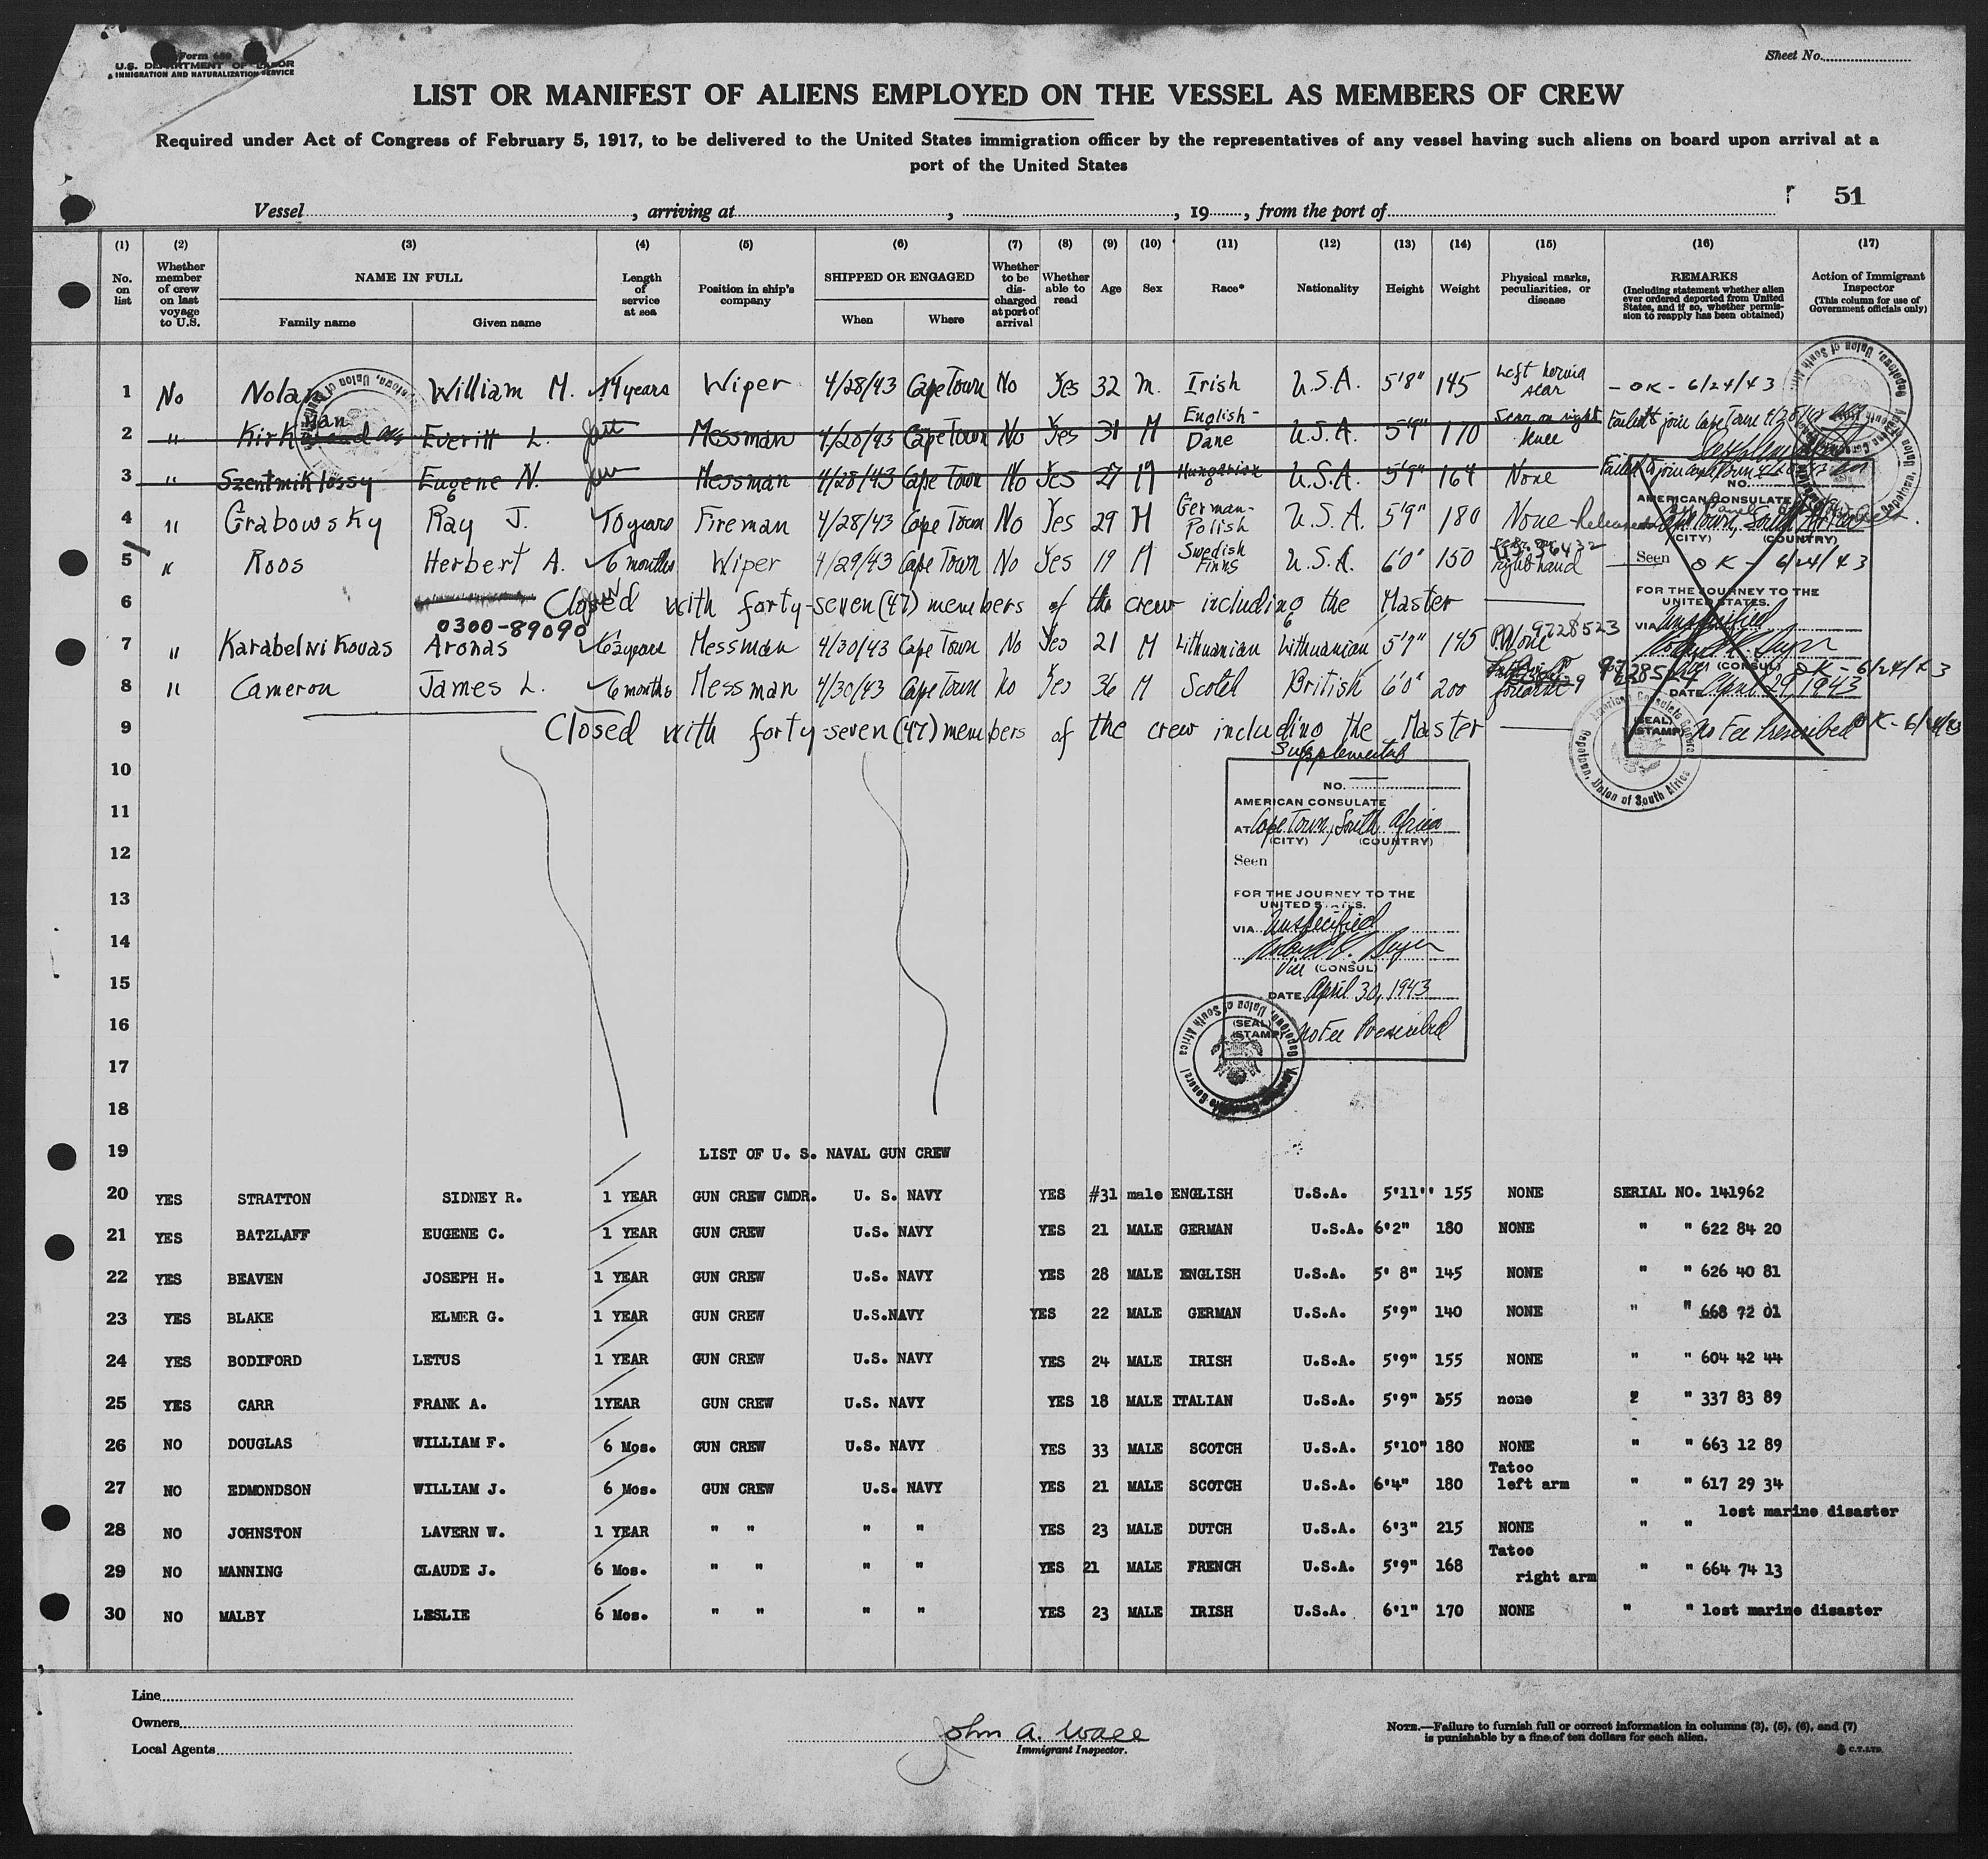 Form 689
U.S. DEPARTMENT OF LABOR
IMMIGRATION AND NATURALIZATION SERVICE
Sheet No.
LIST OR MANIFEST OF ALIENS EMPLOYED ON THE VESSEL AS MEMBERS OF CREW
Required under Act of Congress of February 5, 1917, to be delivered to the United States immigration officer by the representatives of any vessel having such aliens on board upon arrival at a
port of the United States
51
Vessel, arriving at, , 19, from the port of
(1) (2) (3) (4) (5) (6) (7) (8) (9) (10) (11) (12) (13) (14) (15) (16) (17)
No. on list
Whether member of crew on last voyage to U.S.
NAME IN FULL
Family name Given name
Length of service at sea
Position in ship's company
SHIPPED OR ENGAGED
When Where
Whether to be discharged at port of arrival
Whether able to read
Age Sex Race* Nationality Height Weight
Physical marks, peculiarities, or disease
REMARKS
(Including statement whether alien ever ordered deported from United States, and if so, whether permission to reapply has been obtained)
Action of Immigrant Inspector
(This column for use of Government officials only)
1 No Nolan William M. 14 years Wiper 4/28/43 Cape Town No Yes 32 M. Irish U.S.A. 5'8" 145 Left hernia scar - OK - 6/24/43
2 " Kirk man Everitt L. Messman 4/28/43 Cape Town No Yes 31 M English-Dane U.S.A. 5'9" 170 Scar on right knee Failed to join Cape Town 4/28/43
3 " Szentmiklossy Eugene N. Messman 4/28/43 Cape Town No Yes 27 M Hungarian U.S.A. 5'9" 164 None Failed to join Cape Town 4/28/43
4 " Grabowsky Ray J. 10 years Fireman 4/28/43 Cape Town No Yes 29 M German-Polish U.S.A. 5'9" 180 None
5 " Roos Herbert A. 6 months Wiper 4/29/43 Cape Town No Yes 19 M Swedish Finns U.S.A. 6'0" 150 right hand OK - 6/24/43
6 Closed with forty-seven (47) members of the crew including the Master
0300-89090
7 " Karabelnikovas Aronas 6 1/2 years Messman 4/30/43 Cape Town No Yes 21 M Lithuanian Lithuanian 5'9" 145 None 9728523
8 " Cameron James L. 6 months Messman 4/30/43 Cape Town No Yes 36 M Scotch British 6'0" 200 forearm OK - 6/24/43
9 Closed with forty-seven (47) members of the crew including the Master OK - 6/24/43
NO.
AMERICAN CONSULATE
Cape Town, South Africa
(CITY) (COUNTRY)
Seen
FOR THE JOURNEY TO THE
UNITED STATES.
VIA Unspecified
Vice (CONSUL)
DATE April 29, 1943
(SEAL)
(STAMP) No Fee Prescribed
American Consulate General
Capetown, Union of South Africa
Supplemental
10
NO.
11
AMERICAN CONSULATE
AT Cape Town, South Africa
(CITY) (COUNTRY)
12
Seen
13
FOR THE JOURNEY TO THE
UNITED STATES.
VIA Unspecified
14
Vice (CONSUL)
15
DATE April 30, 1943
16
(SEAL)
(STAMP) No Fee Prescribed
American Consulate General
Capetown, Union of South Africa
17
18
19 LIST OF U. S. NAVAL GUN CREW
20 YES STRATTON SIDNEY R. 1 YEAR GUN CREW CMDR. U. S. NAVY YES #31 male ENGLISH U.S.A. 5'11" 155 NONE SERIAL NO. 141962
21 YES BATZLAFF EUGENE C. 1 YEAR GUN CREW U.S. NAVY YES 21 MALE GERMAN U.S.A. 6'2" 180 NONE " " 622 84 20
22 YES BEAVEN JOSEPH H. 1 YEAR GUN CREW U.S. NAVY YES 28 MALE ENGLISH U.S.A. 5' 8" 145 NONE " " 626 40 81
23 YES BLAKE ELMER G. 1 YEAR GUN CREW U.S.NAVY YES 22 MALE GERMAN U.S.A. 5'9" 140 NONE " " 668 72 01
24 YES BODIFORD LETUS 1 YEAR GUN CREW U.S. NAVY YES 24 MALE IRISH U.S.A. 5'9" 155 NONE " " 604 42 44
25 YES CARR FRANK A. 1YEAR GUN CREW U.S. NAVY YES 18 MALE ITALIAN U.S.A. 5'9" 155 none 2 " 337 83 89
26 NO DOUGLAS WILLIAM F. 6 Mos. GUN CREW U.S. NAVY YES 33 MALE SCOTCH U.S.A. 5'10" 180 NONE " " 663 12 89
27 NO EDMONDSON WILLIAM J. 6 Mos. GUN CREW U.S. NAVY YES 21 MALE SCOTCH U.S.A. 6'4" 180 Tatoo left arm " " 617 29 34
28 NO JOHNSTON LAVERN W. 1 YEAR " " " " YES 23 MALE DUTCH U.S.A. 6'3" 215 NONE " " lost marine disaster
29 NO MANNING CLAUDE J. 6 Mos. " " " " YES 21 MALE FRENCH U.S.A. 5'9" 168 Tatoo right arm " " 664 74 13
30 NO MALBY LESLIE 6 Mos. " " " " YES 23 MALE IRISH U.S.A. 6'1" 170 NONE " " lost marine disaster
Line
Owners
Local Agents
John A. Wall
Immigrant Inspector.
NOTE.—Failure to furnish full or correct information in columns (3), (5), (6), and (7)
is punishable by a fine of ten dollars for each alien.
C.T.LTD.